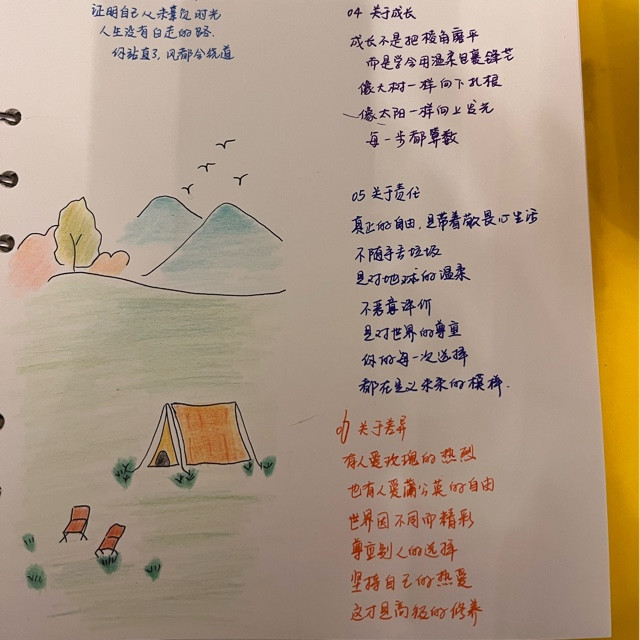 证明自己从未辜负时光
人生没有白走的路.
你站直了,风都会绕道
04 关于成长
成长不是把棱角磨平
而是学会用温柔包裹锋芒
像大树一样向下扎根
像太阳一样向上发光
每一步都算数
05 关于责任
真正的自由,是带着敬畏心生活
不随手丢垃圾
是对地球的温柔
不恶意评价
是对世界的尊重
你的每一次选择
都在定义未来的模样.
06 关于差异
有人爱玫瑰的热烈
也有人爱蒲公英的自由
世界因不同而精彩
尊重别人的选择
坚持自己的热爱
这才是高级的修养